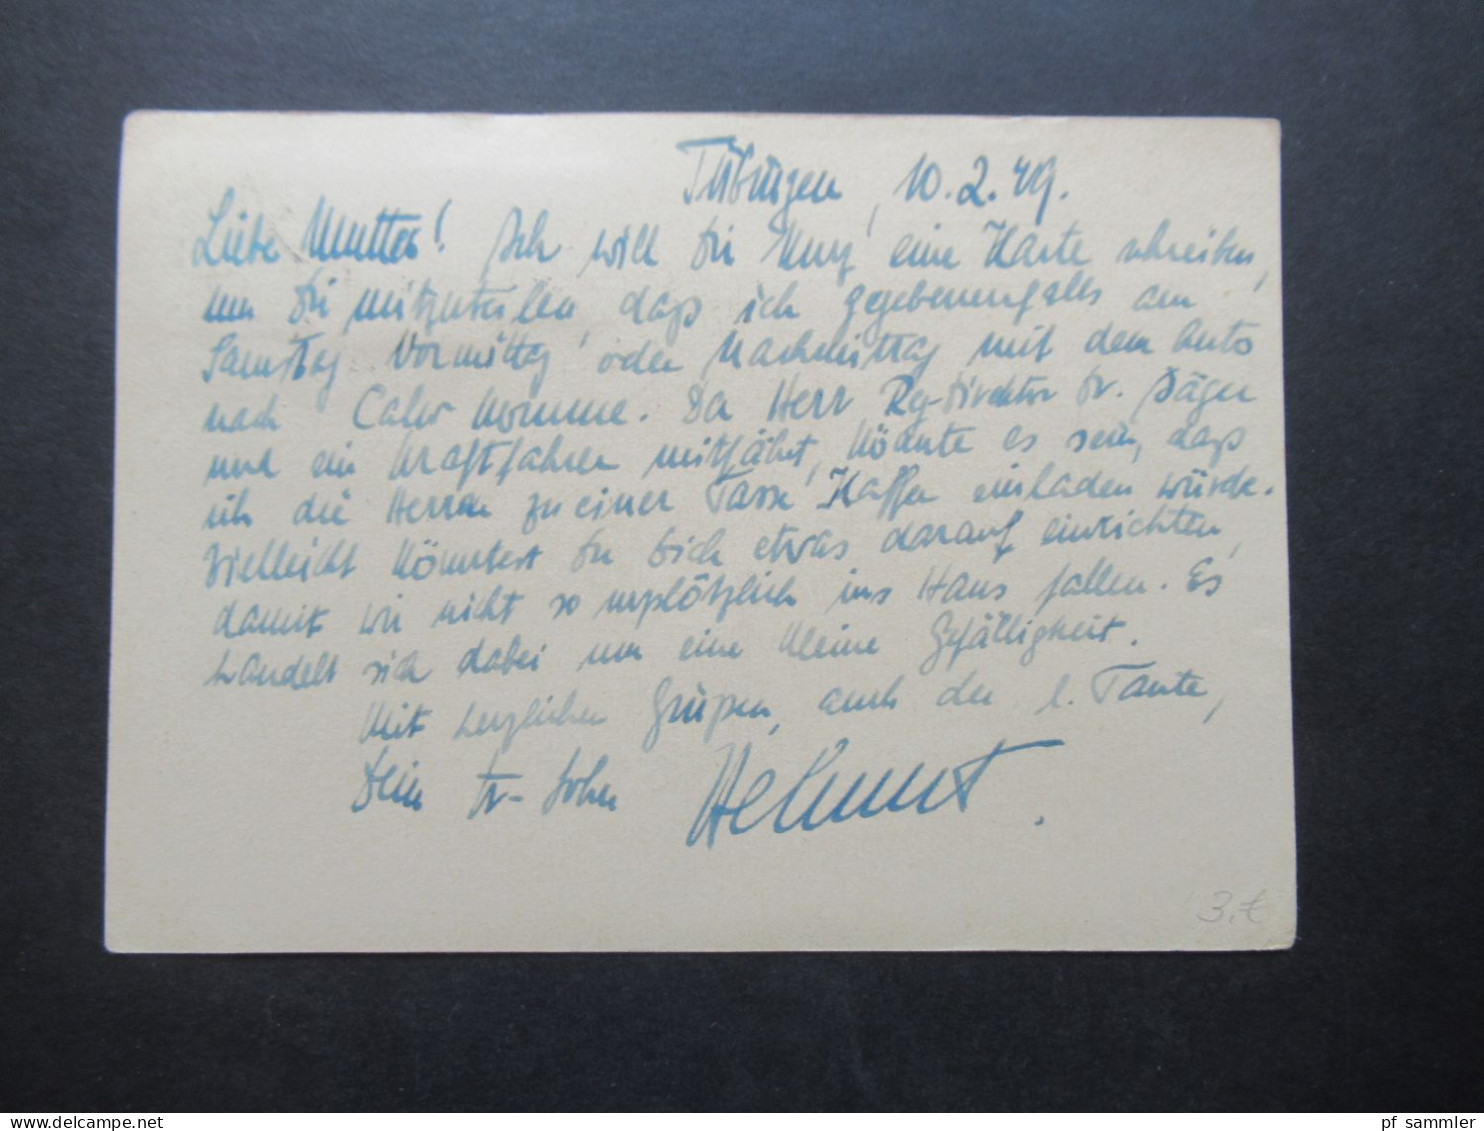 Tübingen, 10.2.49.
Liebe Mutter! Ich will Dir kurz eine Karte schreiben,
um Dir mitzuteilen, daß ich gegebenenfalls am
Samstag Vormittag oder Nachmittag mit dem Auto
nach Calw komme. Da Herr Reg-Direktor Dr. Jäger
und ein Kraftfahrer mitfährt, könnte es sein, daß
ich die Herren zu einer Tasse Kaffee einladen würde.
Vielleicht könntest Du Dich etwas darauf einrichten,
damit wir nicht so urplötzlich ins Haus fallen. Es
handelt sich dabei um eine kleine Gefälligkeit.
Mit herzlichen Grüßen, auch der l. Tante,
Dein tr. Sohn Helmut.
3.€
pf sammler
www.delcampe.net